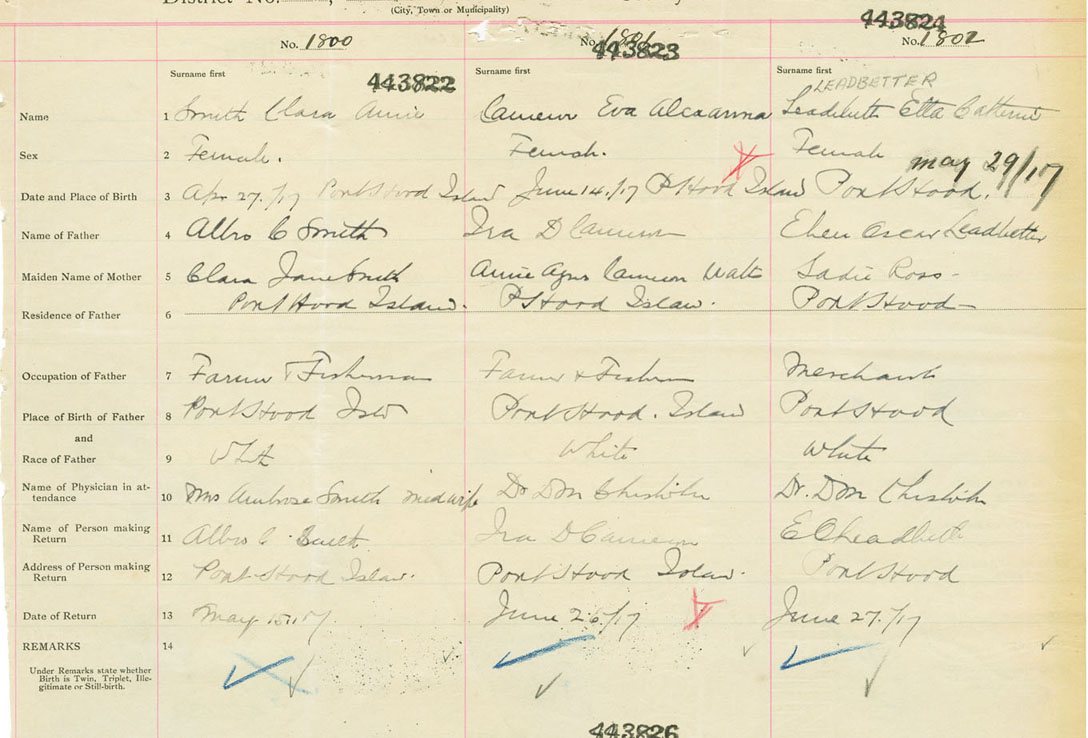 District No.
(City, Town or Municipality)
443824
No. 1800 No. 1801 443823 No. 1802
Surname first 443822 Surname first Surname first
LEADBETTER
Name 1 Smith Clara Annie Cameron Eva Leadbetter Etta Catherine
Sex 2 Female. Female. Female
may 29/17
Date and Place of Birth 3 Apr 27./17 Port Hood Island June 14./17 Pt Hood Island Port Hood.
Name of Father 4 Albro C Smith Ira D Cameron Eben Oscar Leadbetter
Maiden Name of Mother 5 Clara Jane Smith Annie Agnes Cameron Sadie Ross-
Residence of Father 6 Port Hood Island. Pt Hood Island. Port Hood-
Occupation of Father 7 Farmer & Fisherman Farmer & Fisherman Merchant
Place of Birth of Father 8 Port Hood Isld Port Hood. Island Port Hood
and
Race of Father 9 White White White
Name of Physician in at-
tendance 10 Mrs Ambrose Smith midwife Dr DM Chisholm Dr. DM Chisholm
Name of Person making
Return 11 Albro C Smith Ira D Cameron E O Leadbetter
Address of Person making
Return 12 Port Hood Island. Port Hood Island. Port Hood
Date of Return 13 May 15./17 June 26/17 June 27./17
REMARKS 14
Under Remarks state whether
Birth is Twin, Triplet, Ille-
gitimate or Still-birth.
443826